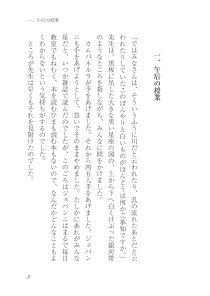 一、午后の授業
一、午后の授業
「ではみなさんは、そういうふうに川だと云われたり、乳の流れたあとだと云
われたりしていたこのぼんやりと白いものがほんとうは何かご承知ですか。」
先生は、黒板に吊した大きな黒い星座の図の、上から下へ白くけぶった銀河帯
のようなところを指しながら、みんなに問をかけました。
カムパネルラが手をあげました。それから四五人手をあげました。ジョバン
ニも手をあげようとして、急いでそのままやめました。たしかにあれがみんな
星だと、いつか雑誌で読んだのでしたが、このごろはジョバンニはまるで毎日
教室でもねむく、本を読むひまも読む本もないので、なんだかどんなこともよ
くわからないという気持ちがするのでした。
ところが先生は早くもそれを見附けたのでした。
5